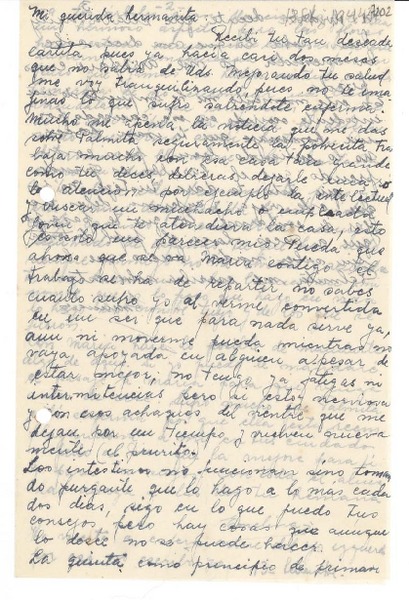 Mi querida hermanita:
Recibí tu tan deseada
cartita pues ya hacía casi dos meses
que no sabía de Uds. Mejorando tu salud
me voy tranquilizando, pues no te ima
ginas lo que sufro sabiéndote enferma.
Mucho me apena la noticia que me das
sobre Palmita, seguramente la pobrecita tra
baja mucho con esa casa tan grande
como tu dices, debieras dejarle única
la atención por ejemplo la intelectual
y buscar un muchacho o empleada
joven que te atendiera la casa, esto
es solo un parecer mio. Pueda que
ahora que se va María contigo el
trabajo se ha de repartir no sabes
cuanto sufro yo al verme convertida
en un ser que para nada serve ya,
aun ni moverme pueda mientras no
vaya apoyada en alguien a pesar de
estar mejor; no tengo ya fatigas ni
intermitencias pero si estoy nerviosa
y con esos achaques del vientre que me
dejan por un tiempo y vuelven nueva
mente el prurito.
Los intestinos no funcionan sino toman
do purgante que lo hago a lo mas cada
dos dias, sigo en lo que puedo tus
consejos, pero hay cosas que aunque
lo desee no se puede hacer.
La quinta como principio de primave